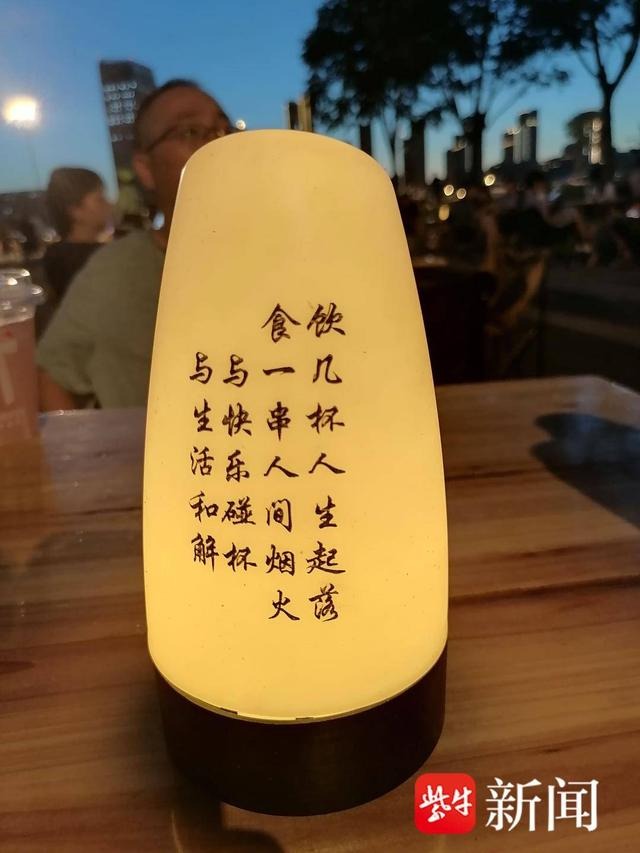 饮几杯人生起落
食一串人间烟火
与快乐碰杯
与生活和解
紫牛新闻